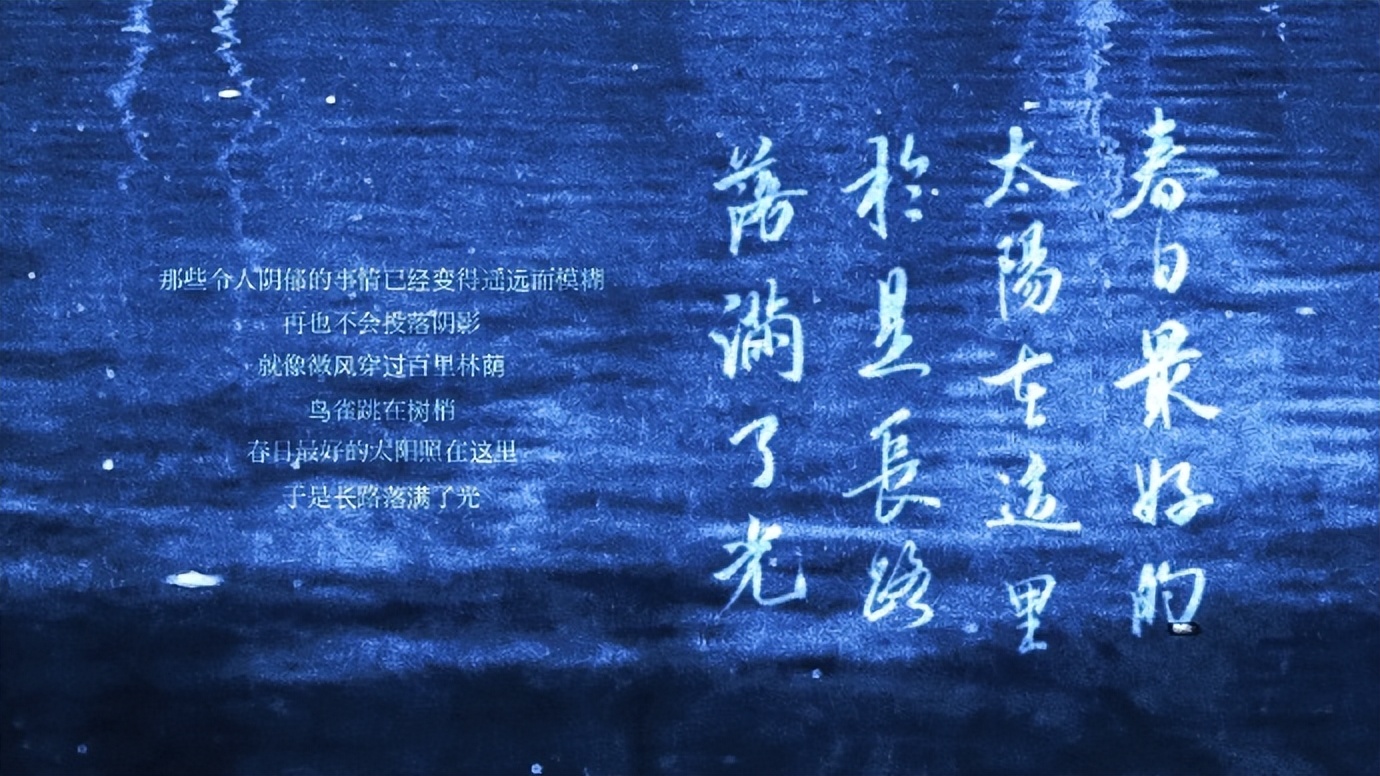 春日最好的
太陽在這里
於是長路
落滿了光
那些令人阴郁的事情已经变得遥远而模糊
再也不会投落阴影
就像微风穿过百里林荫
鸟雀跳在树梢
春日最好的太阳照在这里
于是长路落满了光